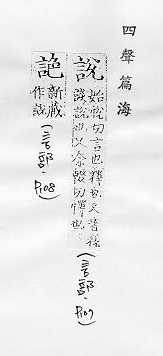 四聲篇海
說
切言也釋也又音稅
談說也又余輟切懌也
(言部.
新藏
作
(言部. P108)